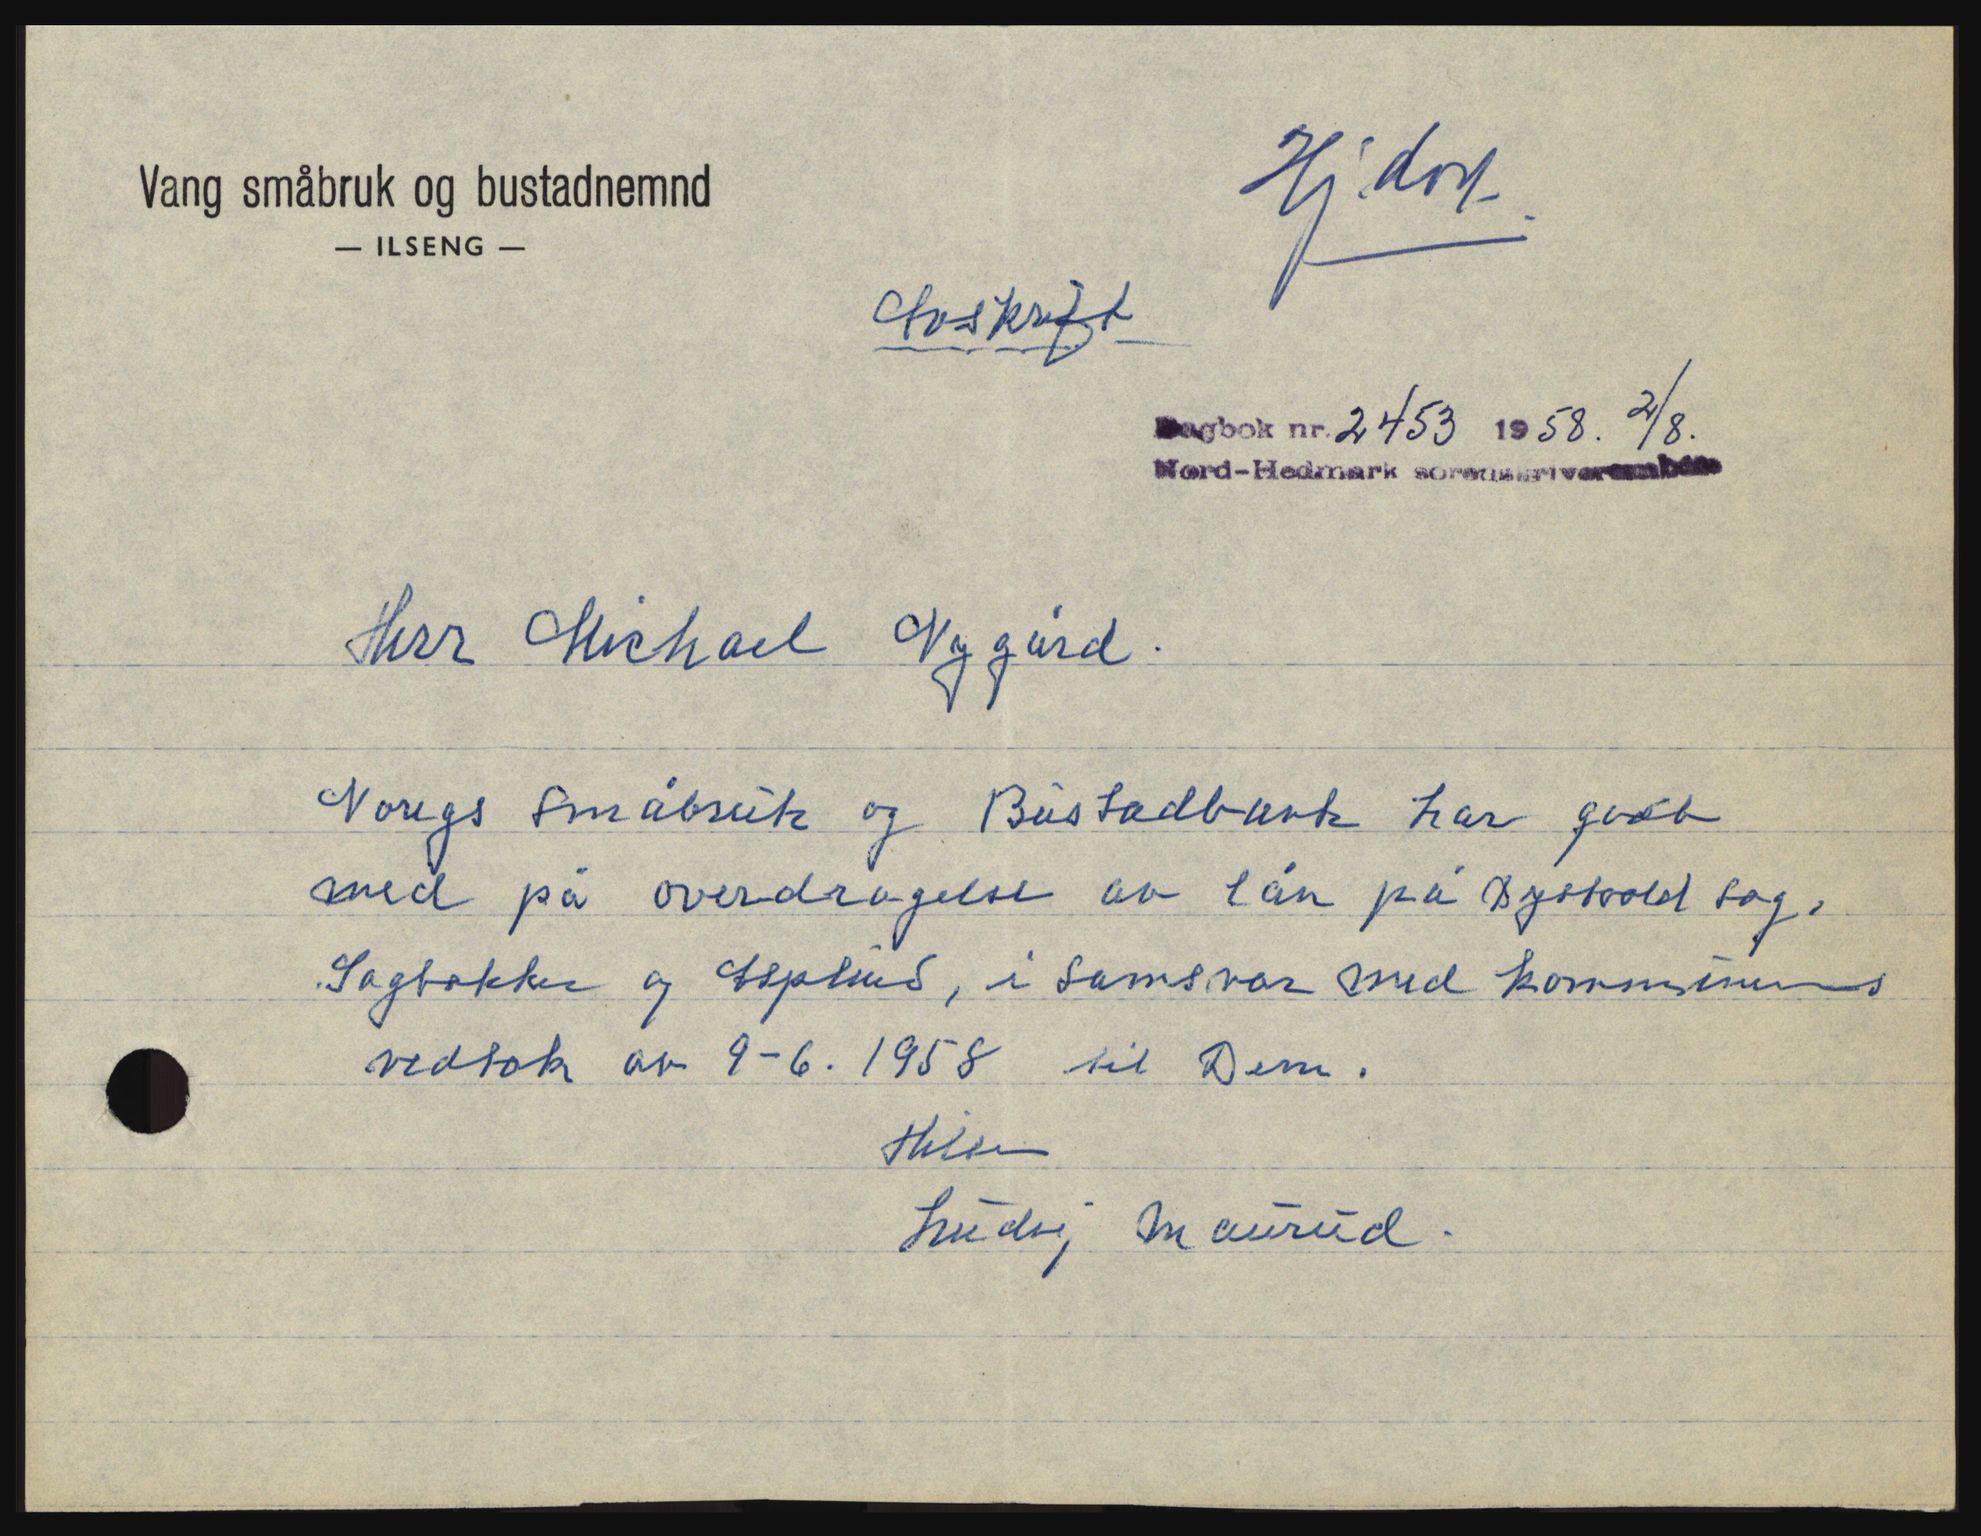 Vang småbruk og bustadnemnd
— ILSENG —
Hj. dok.
Avskrift
Dagbok nr. 2453 1958. 2/8.
Nord-Hedmark sorenskriverembede
Herr Michael Nygård.
Noregs Småbruk og Bustadbank har godt
med på overdragelse av lån på sag,
Sagbakken og Asplund, i samsvar med kommunens
vedtak av 9-6. 1958 til Dem.
Hilsen
Ludvig Maurud.